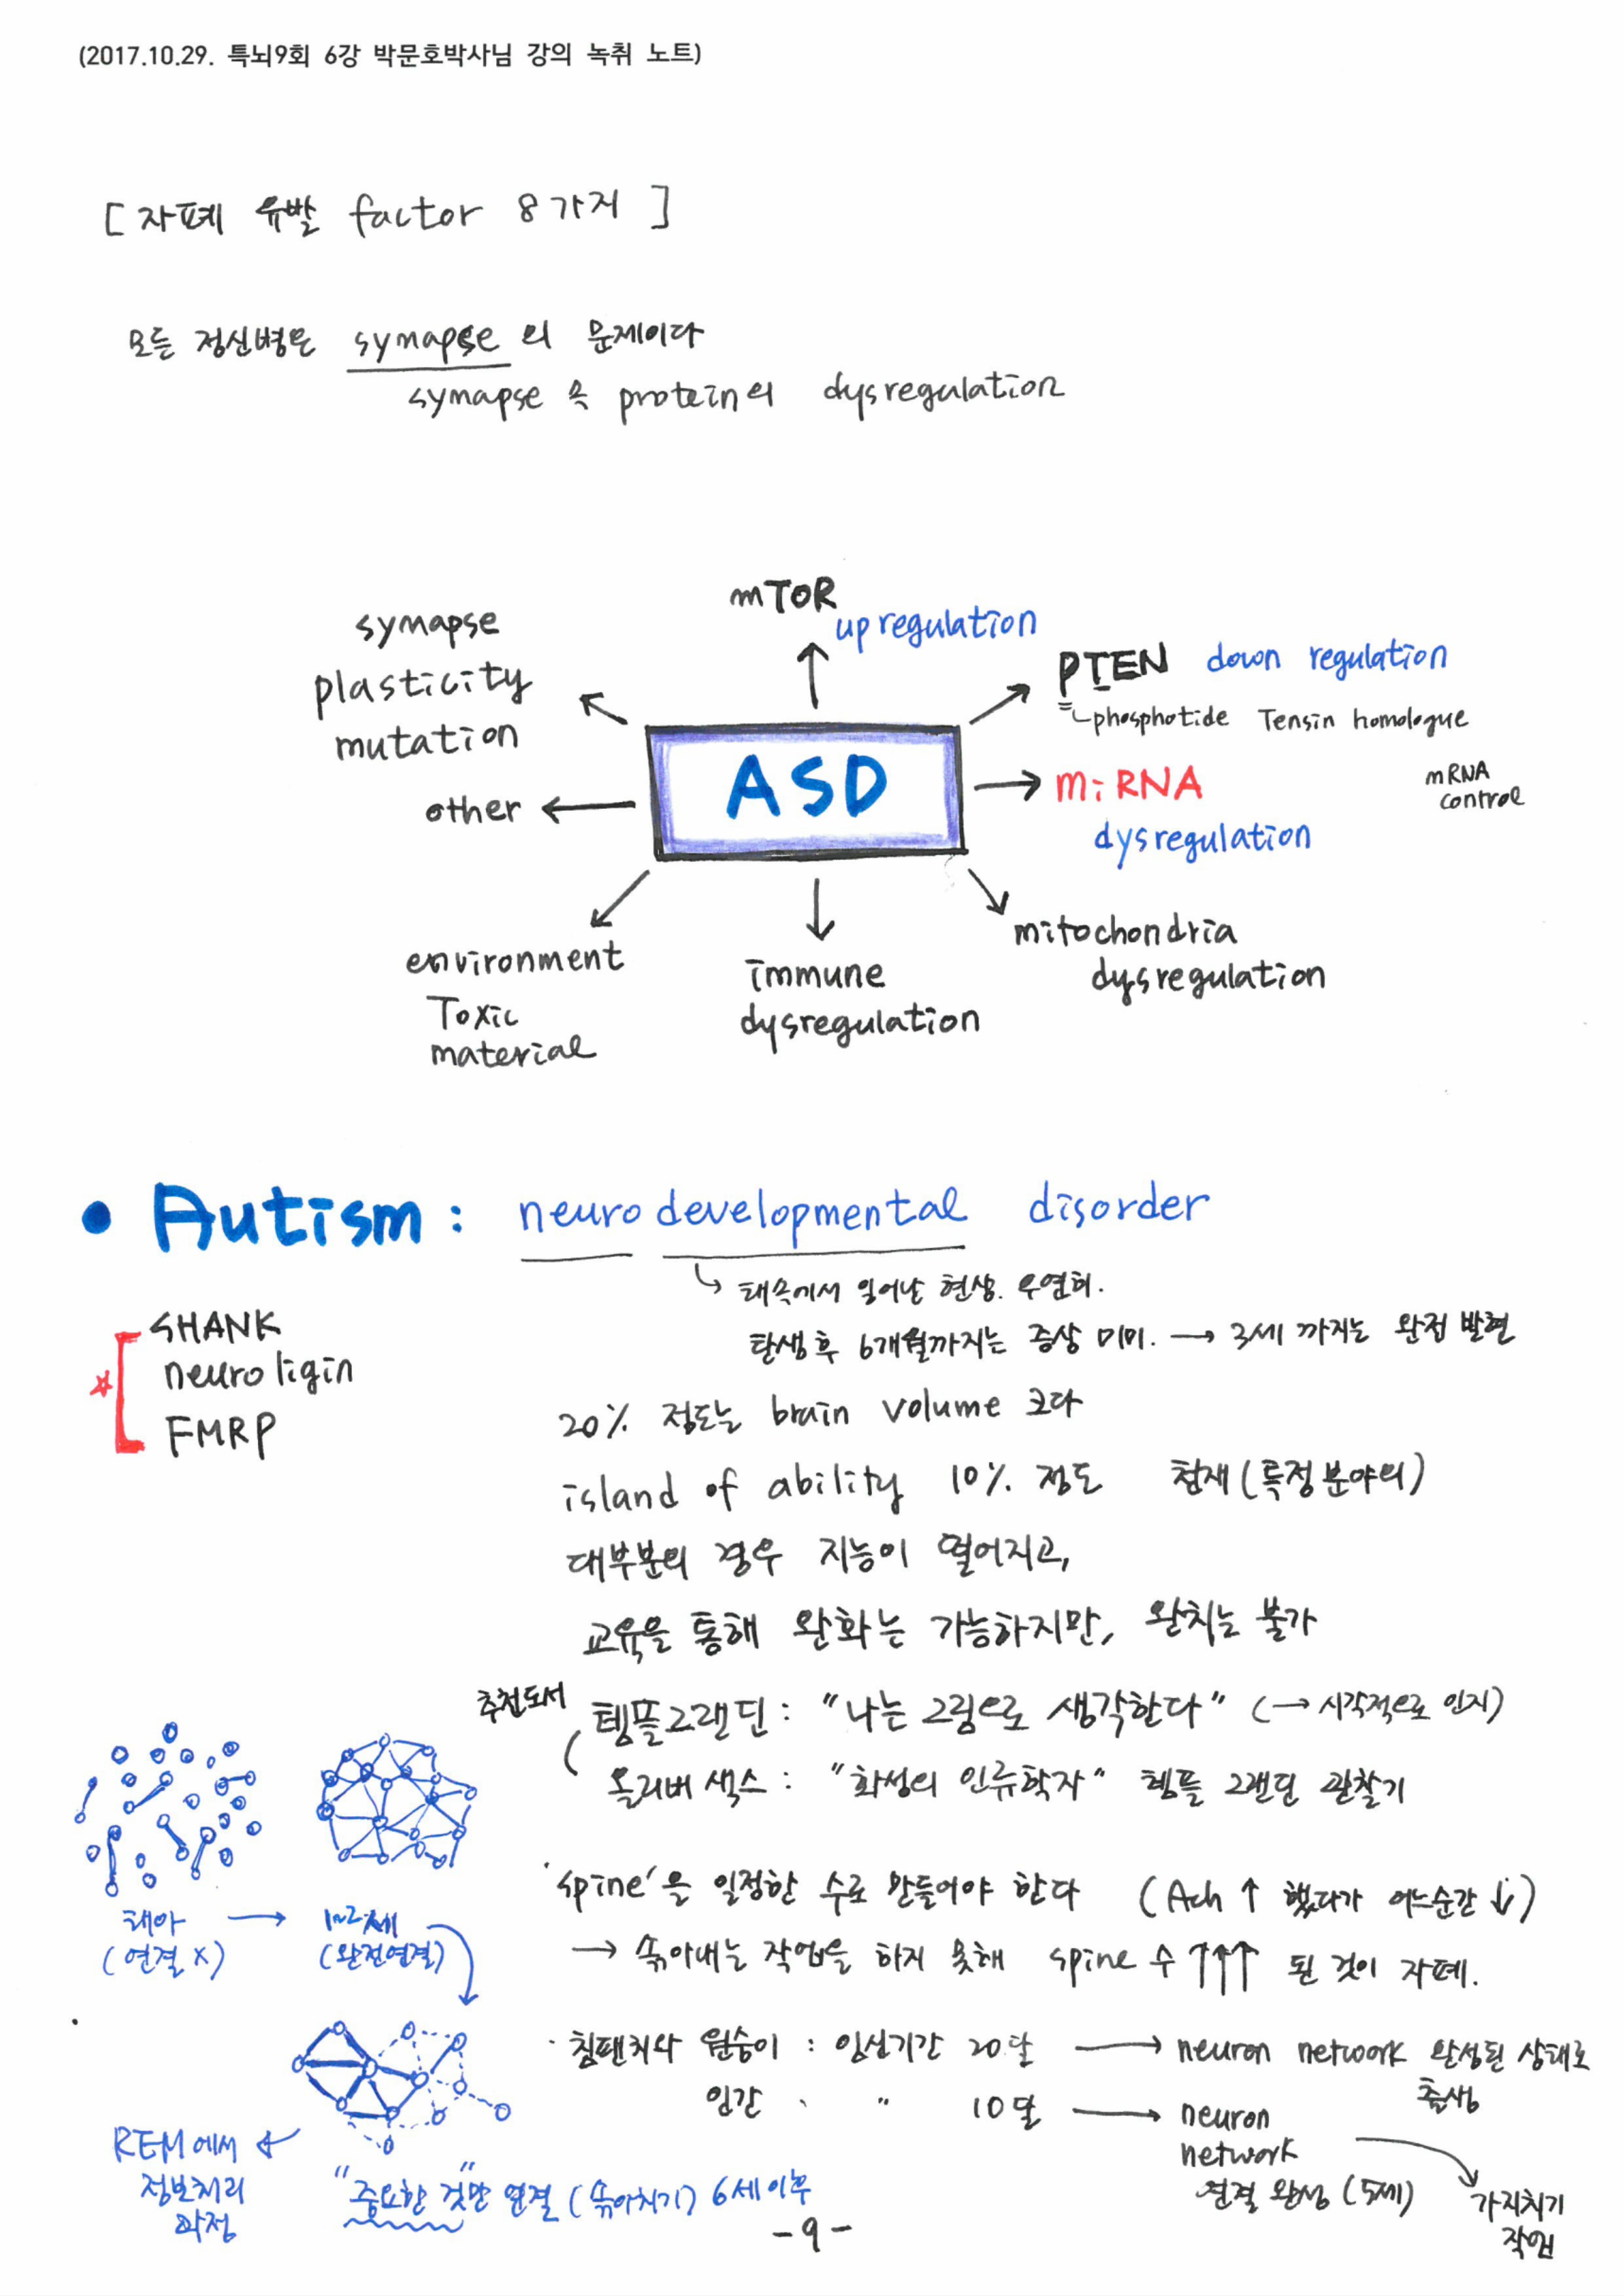 (2017.10.29. 특뇌9회 6강 박문호박사님 강의 녹취 노트)
[ 자폐 유발 factor 8가지 ]
모든 정신병은 synapse의 문제이다
synapse 속 protein의 dysregulation
mTOR
up regulation
synapse
plasticity
mutation
PTEN down regulation
phosphotide Tensin homologue
ASD
miRNA
dysregulation
mRNA
control
other
mitochondria
dysregulation
environment
Toxic
material
immune
dysregulation
• Autism : neuro developmental disorder
태속에서 일어난 현상. 우연히.
탄생 후 6개월까지는 증상 미미. → 3세 까지는 완전 발현
☆ SHANK
neuroligin
FMRP
20% 정도는 brain volume 크다
island of ability 10% 정도 천재(특정분야의)
대부분의 경우 지능이 떨어지고,
교육을 통해 완화는 가능하지만, 완치는 불가
추천도서
템플그랜딘 : "나는 그림으로 생각한다" (→ 시각적으로 인지)
올리버 색스 : "화성의 인류학자" 템플 그랜딘 관찰기
'spine'을 일정한 수로 만들어야 한다 (Ach ↑ 했다가 어느순간 ↓)
→ 솎아내는 작업을 하지 못해 spine 수 ↑↑↑ 된 것이 자폐.
태아 → 1~2세
(연결 x) (완전연결)
· 침팬치와 원숭이 : 임신기간 20달 → neuron network 완성된 상태로
출생
인간 、 〃 10달 → neuron
network
연결 완성 (5세)
가지치기
작업
REM에서
정보처리
과정
"중요한 것"만 연결 (솎아치기) 6세 이후
- 9 -